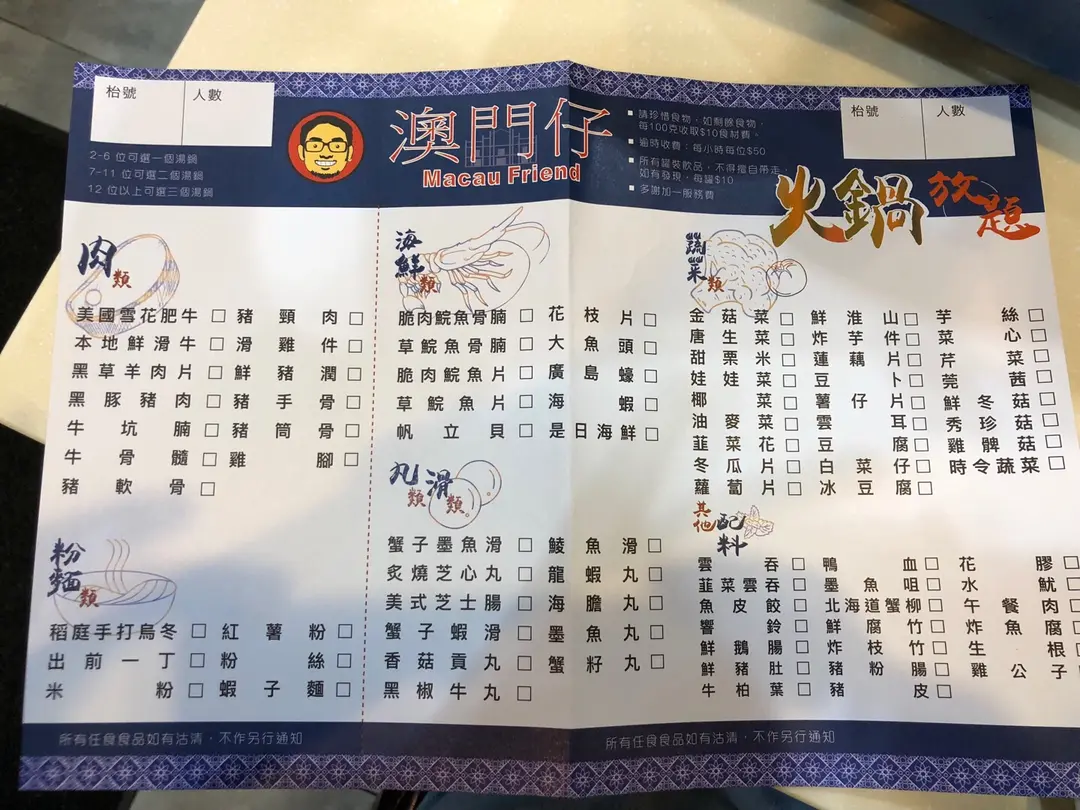 枱號 人數
2-6 位可選一個湯鍋
7-11 位可選二個湯鍋
12 位以上可選三個湯鍋
澳門仔
Macau Friend
請珍惜食物，如剩餘食物，
每100克收取$10食材費。
逾時收費：每小時每位$50
所有罐裝飲品，不得擅自帶走，
如有發現，每罐$10
多謝加一服務費
枱號 人數
火鍋放題
肉類
美國雪花肥牛 □ 豬頸肉 □
本地鮮滑牛 □ 滑雞件 □
黑草羊肉片 □ 鮮豬潤 □
黑豚豬肉 □ 豬手骨 □
牛坑腩 □ 豬筒骨 □
牛骨髓 □ 雞腳 □
豬軟骨 □
粉麵類
稻庭手打烏冬 □ 紅薯粉 □
出前一丁 □ 粉絲 □
米粉 □ 蝦子麵 □
海鮮類
脆肉鯇魚骨腩 □ 花枝片 □
草鯇魚骨腩 □ 大魚頭 □
脆肉鯇魚片 □ 廣島蠔 □
草鯇魚片 □ 海蝦 □
帆立貝 □ 是日海鮮 □
丸類 滑類
蟹子墨魚滑 □ 鯪魚滑 □
炙燒芝心丸 □ 龍蝦丸 □
美式芝士腸 □ 海膽丸 □
蟹子蝦滑 □ 墨魚丸 □
香菇貢丸 □ 蟹籽丸 □
黑椒牛丸 □
蔬菜類
金菇菜 □ 鮮淮山 □ 芋絲 □
唐生菜 □ 炸芋件 □ 菜心 □
甜栗米 □ 蓮藕片 □ 芹菜 □
娃娃菜 □ 豆卜 □ 莞茜 □
椰菜 □ 薯仔片 □ 鮮冬菇 □
油麥菜 □ 雲耳 □ 秀珍菇 □
韮菜花 □ 豆腐 □ 雞髀菇 □
冬瓜片 □ 白菜仔 □ 時令蔬菜 □
蘿蔔片 □ 冰豆腐 □
其他配料
雲吞 □ 鴨血 □ 花膠 □
韮菜雲吞 □ 墨魚咀 □ 水魷 □
魚皮餃 □ 北海道蟹柳 □ 午餐肉 □
響鈴 □ 鮮腐竹 □ 炸魚腐 □
鮮鵝腸 □ 炸枝竹 □ 生根 □
鮮豬肚 □ 豬粉腸 □ 雞公子 □
牛柏葉 □ 豬皮 □
所有任食食品如有沽清，不作另行通知
所有任食食品如有沽清，不作另行通知